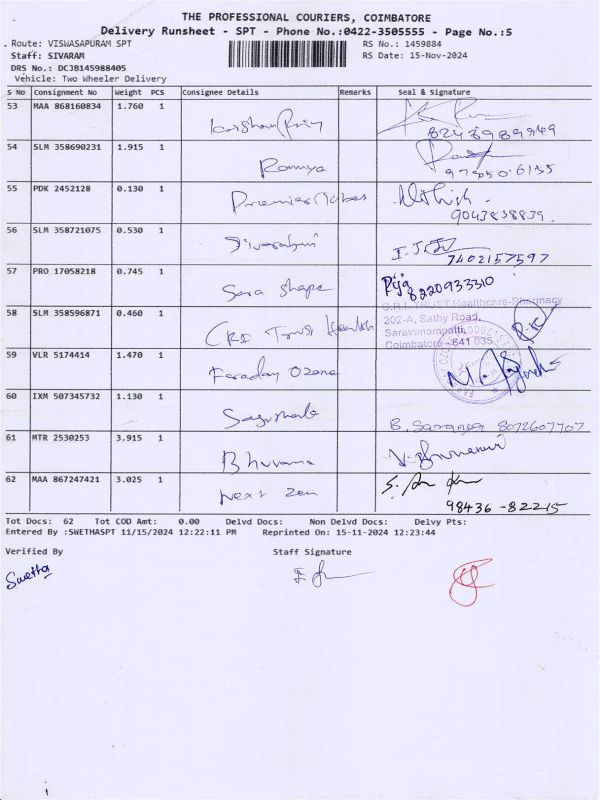 THE PROFESSIONAL COURIERS, COIMBATORE
Delivery Runsheet - SPT - Phone No.:0422-3505555 - Page No.:5
Route: VISWASAPURAM SPT RS No.: 1459884
Staff: SIVARAM RS Date: 15-Nov-2024
DRS No.: DCJB145988405
Vehicle: Two Wheeler Delivery
S No Consignment No Weight PCS Consignee Details Remarks Seal & signature
53 MAA 868160834 1.760 1
54 SLM 358690231 1.915 1 Ramya
55 PDK 2452128 0.130 1 Premier
9043838839.
56 SLM 358721075 0.530 1
7402157597
57 PRO 17058218 0.745 1 Sara Shape
8220933310
58 SLM 358596871 0.460 1 CRI Trust Health
C.R.I. TRUST Healthcare-Pharmacy
202-A, Sathy Road,
Saravanampatti,
Coimbatore - 641 035
59 VLR 5174414 1.470 1 Faraday Ozone
60 IXM 507345732 1.130 1
B. Saranya 8072607707
61 MTR 2530253 3.915 1 Bhuvana
62 MAA 867247421 3.025 1 Next Zen
98436-82215
Tot Docs: 62 Tot COD Amt: 0.00 Delvd Docs: Non Delvd Docs: Delvy Pts:
Entered By :SWETHASPT 11/15/2024 12:22:11 PM Reprinted On: 15-11-2024 12:23:44
Verified By Staff Signature
Swetha